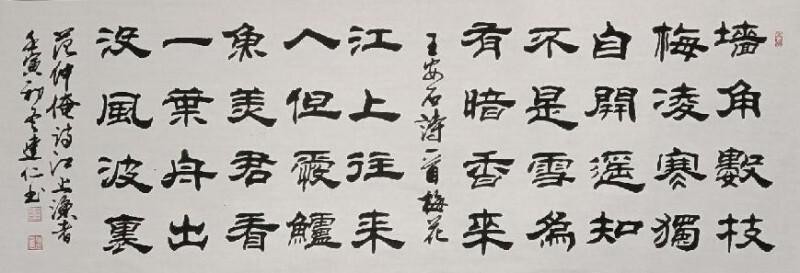 墻角數枝
梅凌寒獨
自開遥知
不是雪爲
有暗香来
王安石詩一首梅花
江上往来
人但愛鱸
魚美君看
一葉舟出
没風波裏
范仲淹詩江上漁者
壬寅初冬仁书